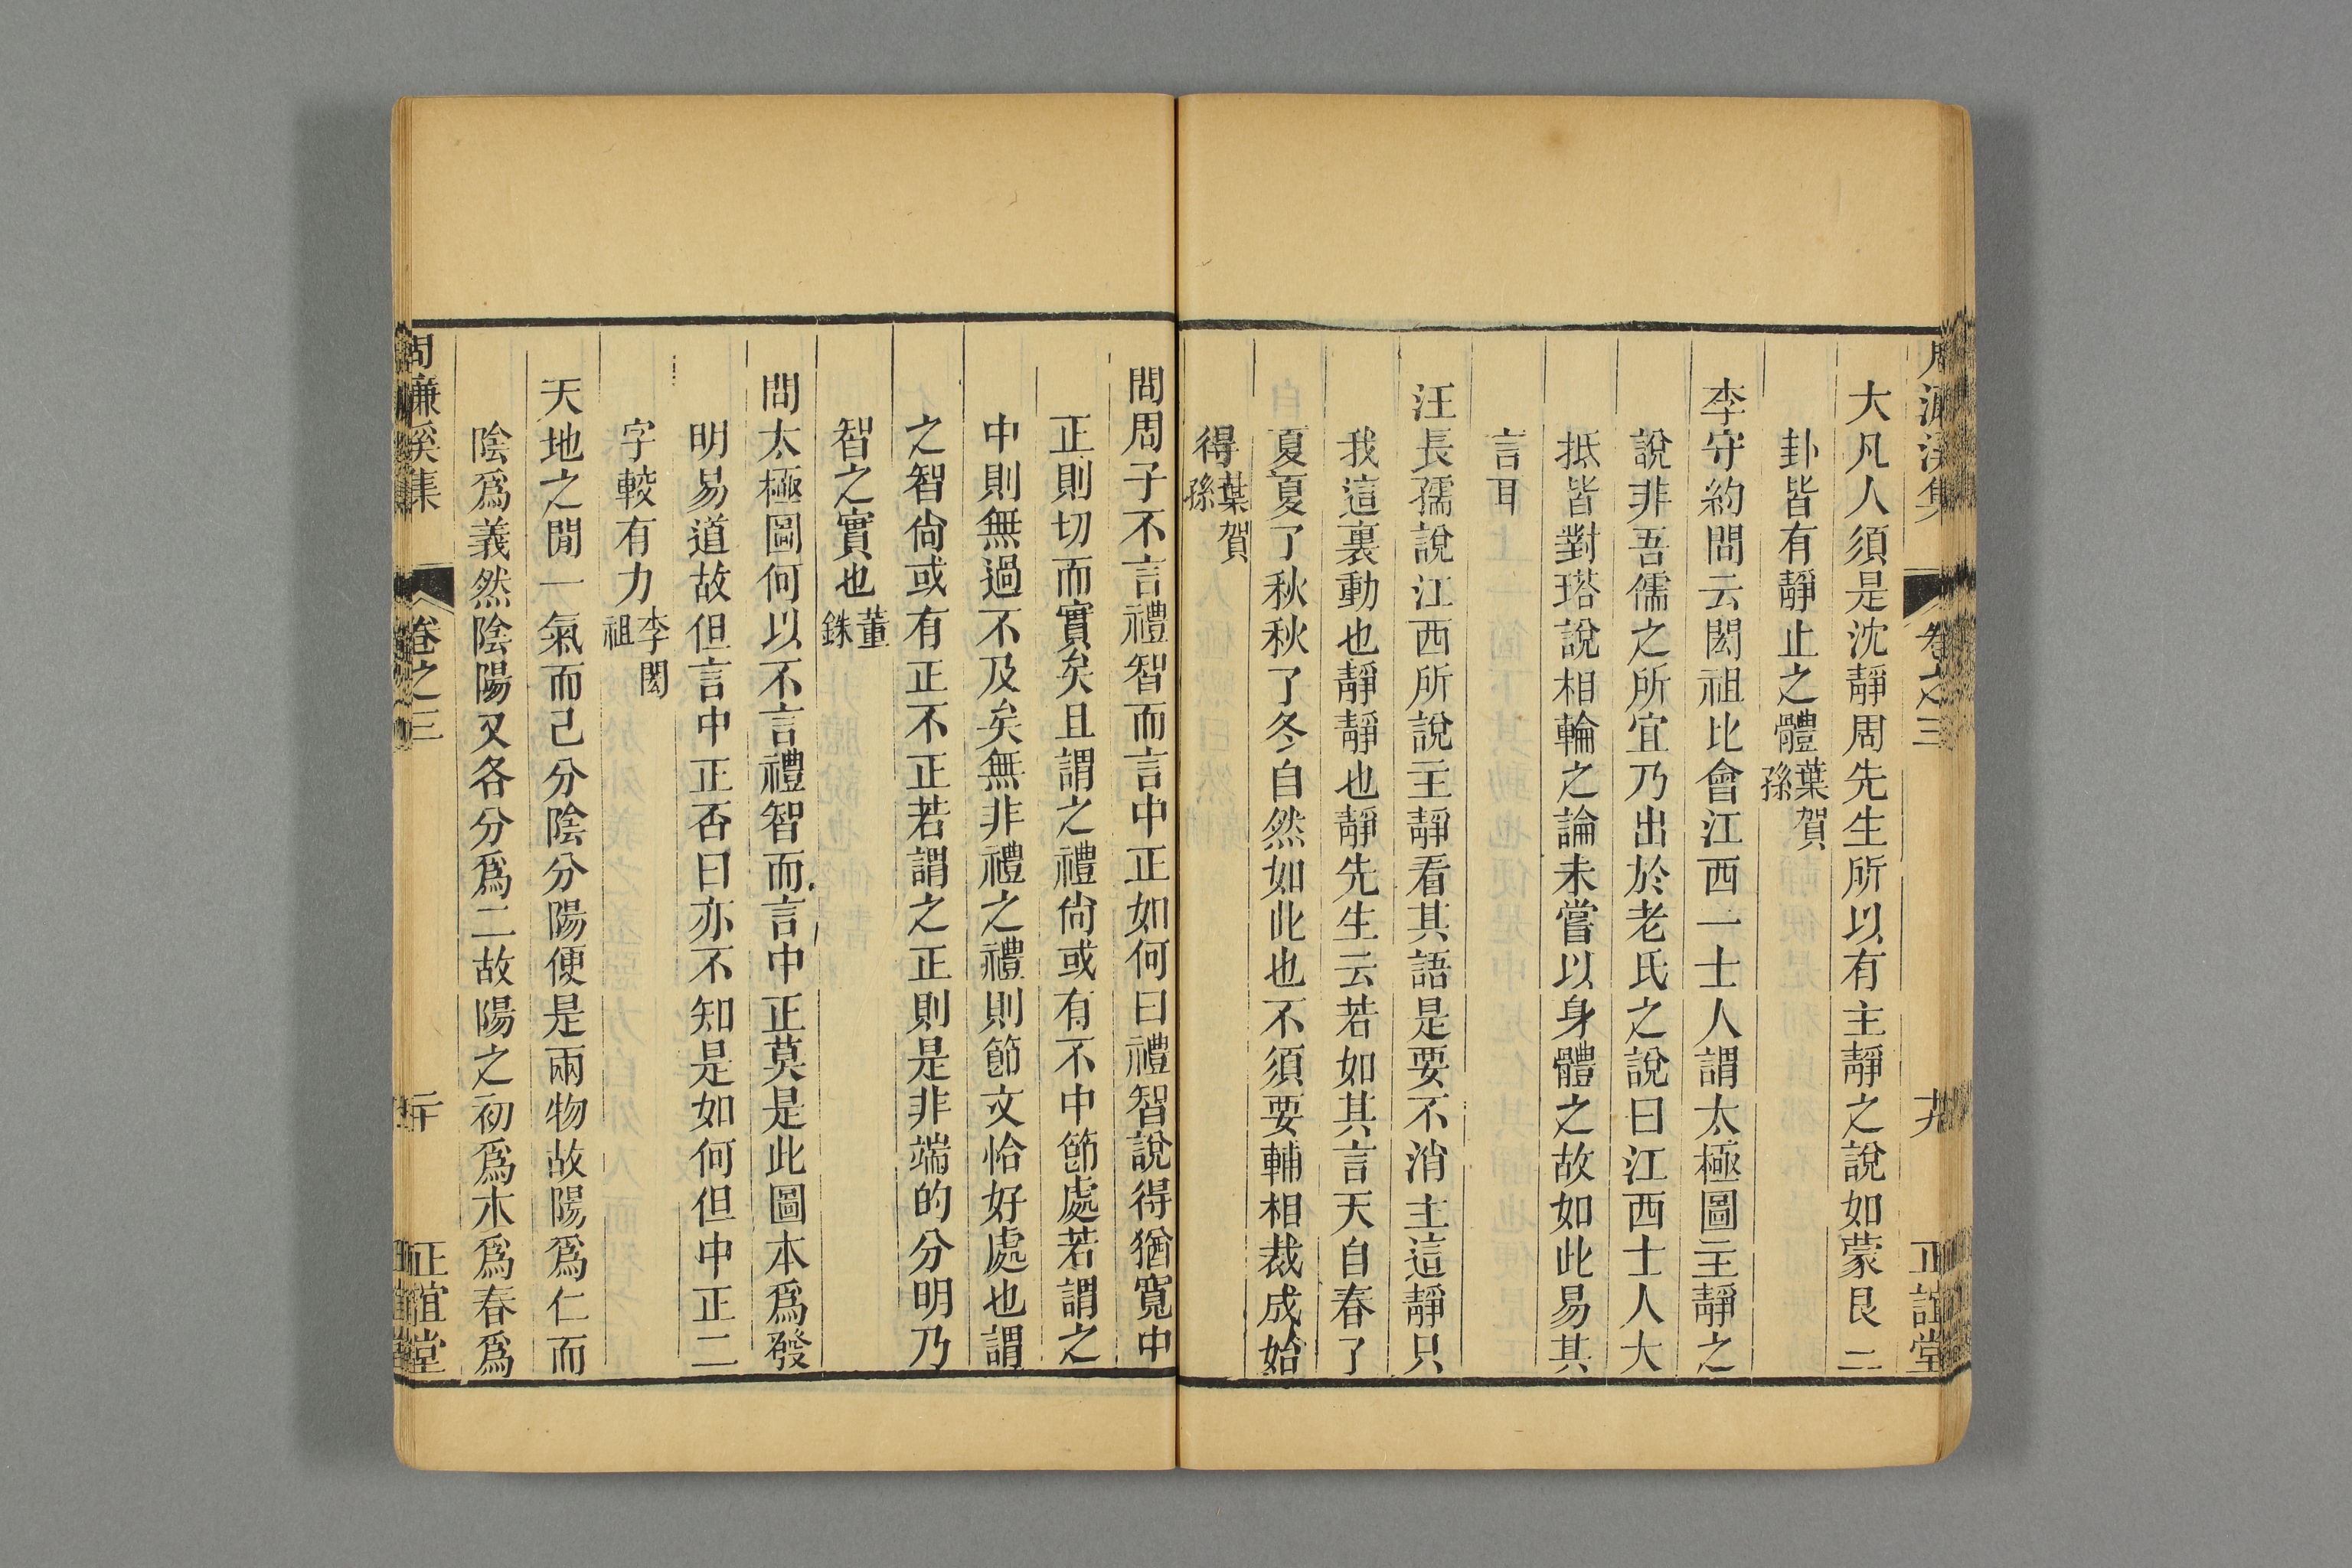 周濂溪集 卷之三 十九 正誼堂
大凡人須是沈靜周先生所以有主靜之說如蒙艮二
卦皆有靜止之體葉賀孫
李守約問云閎祖比會江西一士人謂太極圖主靜之
說非吾儒之所宜乃出於老氏之說曰江西士人大
抵皆對塔說相輪之論未嘗以身體之故如此易其
言耳
汪長孺說江西所說主靜看其語是要不消主這靜只
我這裏動也靜靜也靜先生云若如其言天自春了
夏夏了秋秋了冬自然如此也不須要輔相裁成始
得葉賀孫
問周子不言禮智而言中正如何曰禮智說得猶寬中
正則切而實矣且謂之禮尙或有不中節處若謂之
中則無過不及矣無非禮之禮則節文恰好處也謂
之智尙或有正不正若謂之正則是非端的分明乃
智之實也董銖
問太極圖何以不言禮智而言中正莫是此圖本爲發
明易道故但言中正否曰亦不知是如何但中正二
字較有力李閎祖
天地之閒一氣而己分陰分陽便是兩物故陽爲仁而
陰爲義然陰陽又各分爲二故陽之初爲木爲春爲
周濂溪集 卷之三 二十 正誼堂